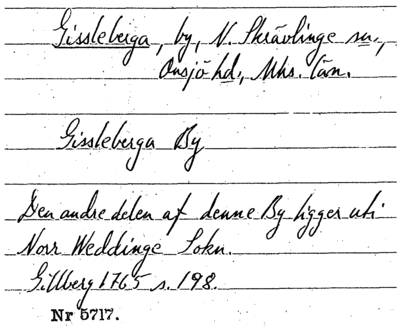 Gissleberga, by, N. Skrävlinge sn.,
Onsjö hd, Mhs. län.
Gissleberga By
Den andre delen af denne By ligger uti
Norr Weddinge Sokn.
Gillberg 1765 s. 198.
Nr 5717.